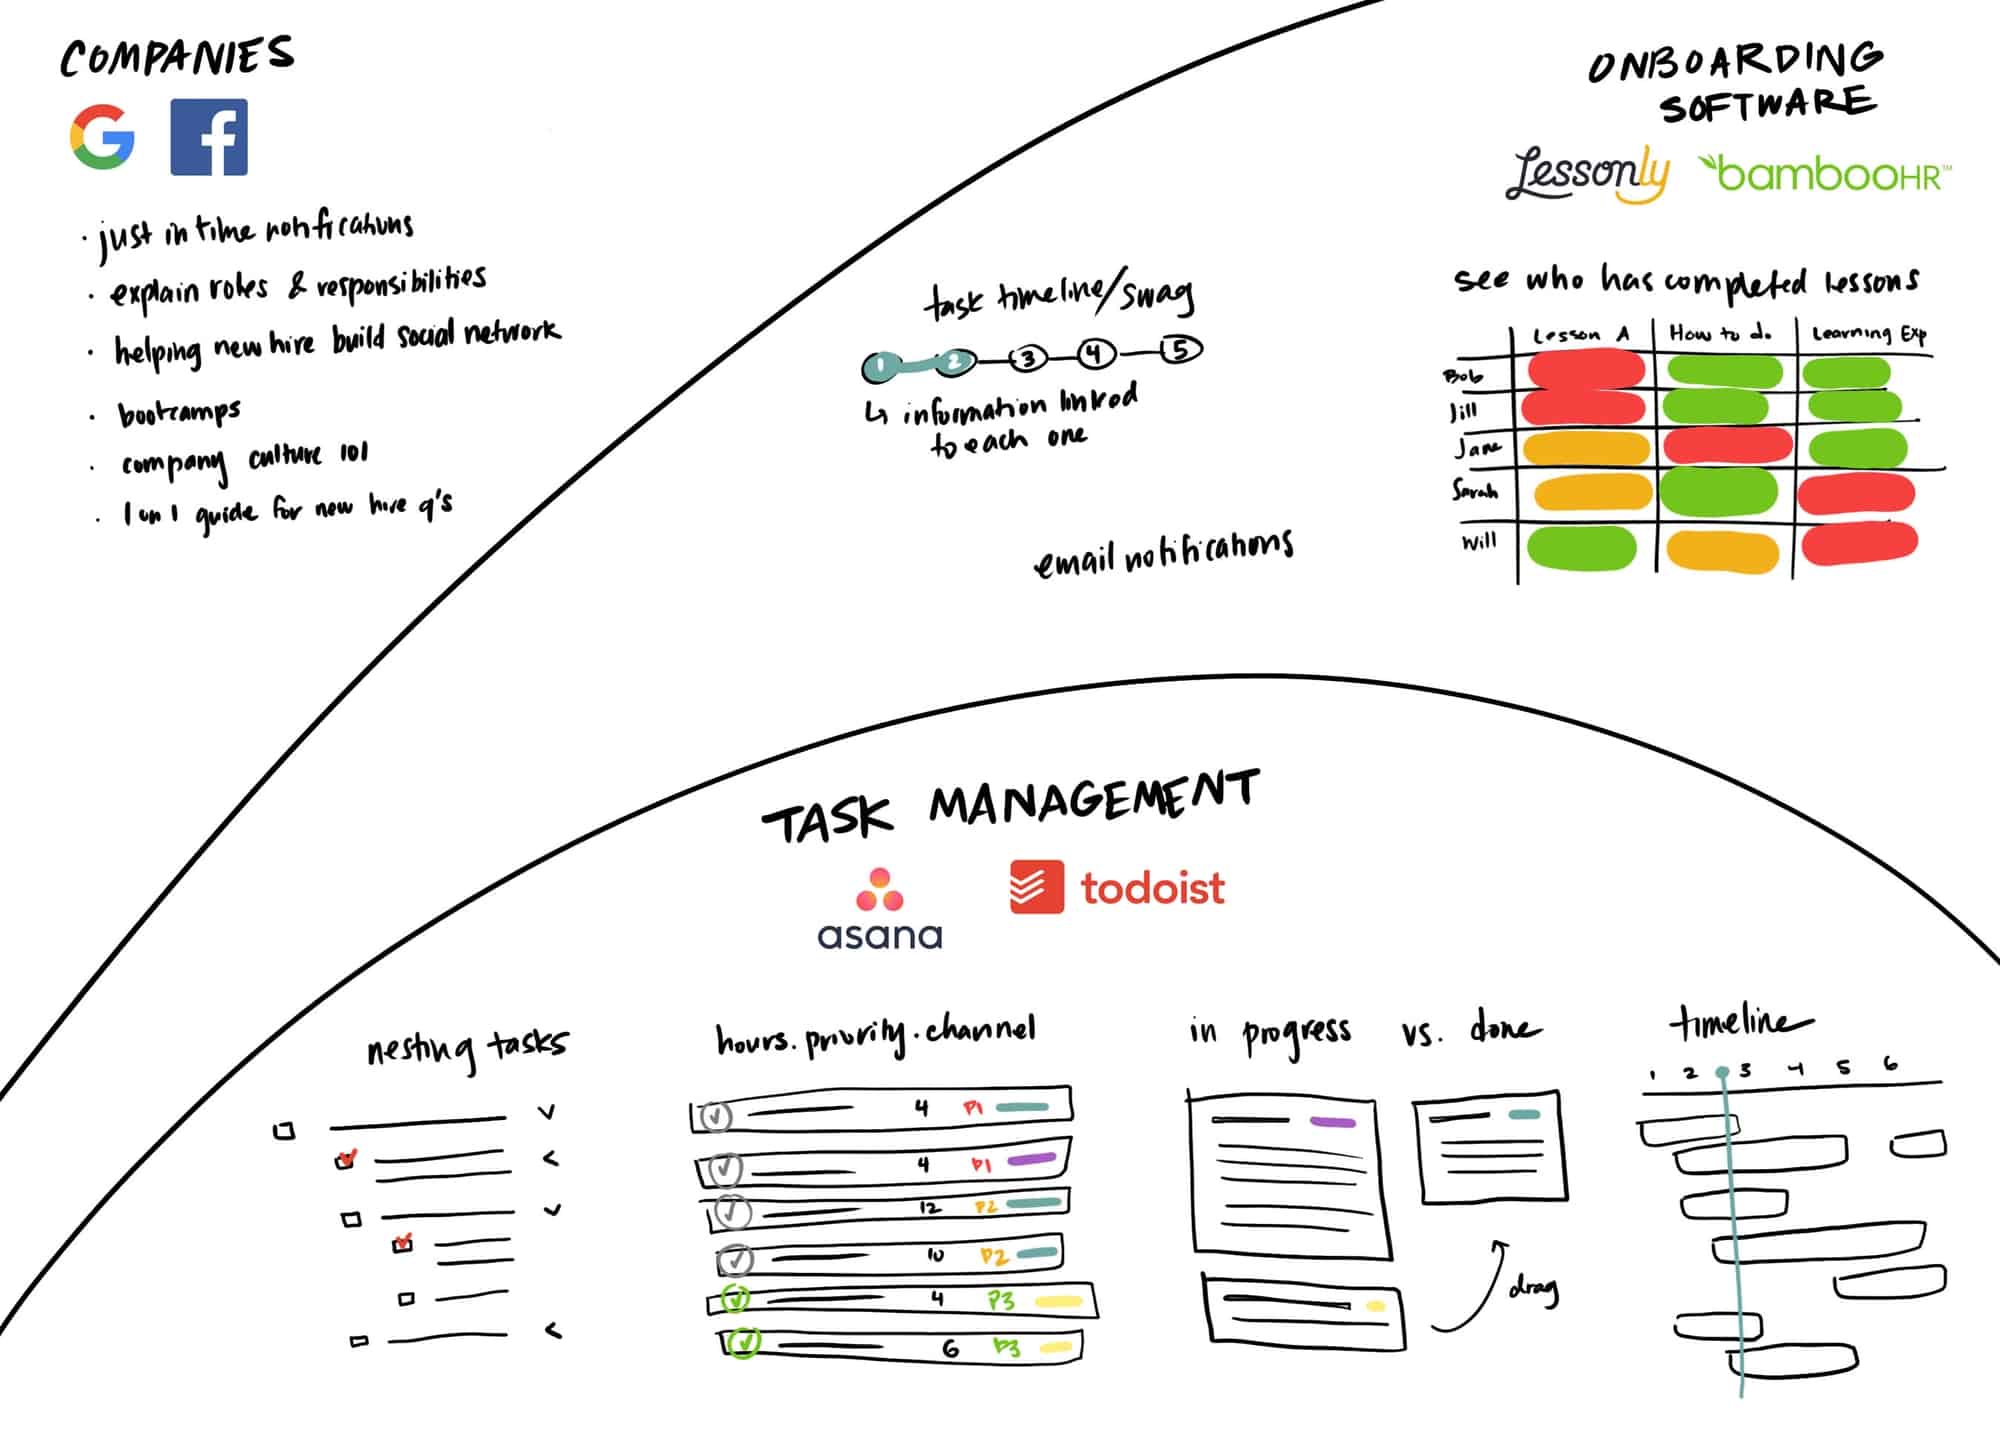 COMPANIES
G f
· just in time notifications
· explain roles & responsibilities
· helping new hire build social network
· bootcamps
· company culture 101
· 1 on 1 guide for new hire q's
ONBOARDING
SOFTWARE
Lessonly bambooHR™
task timeline/swag
1 2 3 4 5
↳ information linked
to each one
email notifications
see who has completed lessons
Lesson A How to do Learning Exp
Bob
Jill
Jane
Sarah
Will
TASK MANAGEMENT
asana
todoist
nesting tasks
hours. priority. channel
4 P1
4 P1
12 P2
10 P2
4 P3
6 P3
in progress vs. done
drag
timeline
1 2 3 4 5 6